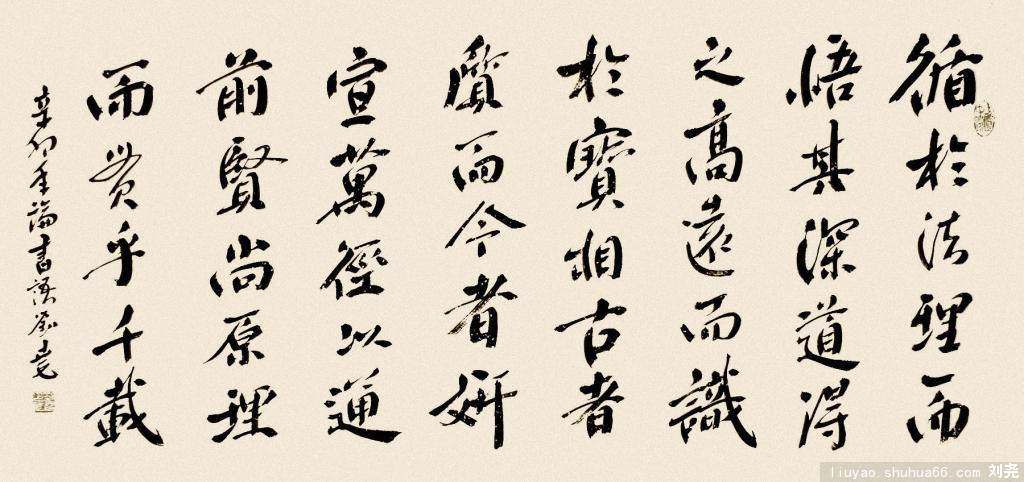 循於法理而
悟其深道得
之高遠而識
於寶相古者
質而今者妍
宣萬徑以通
前賢尚原理
而貫乎千載
辛卯年論書語劉堯
liuyao.shuhua66.com 刘尧